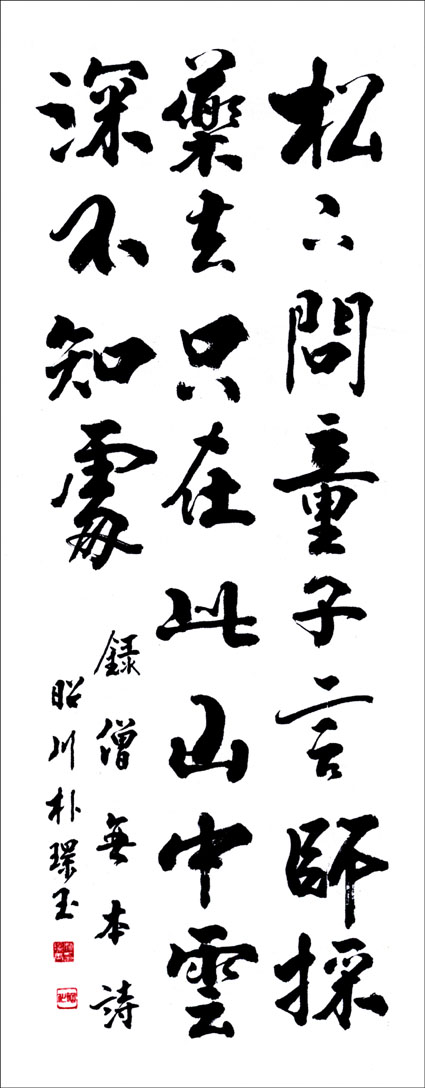 松下問童子言師採
藥去只在此山中雲
深不知處
錄僧無本詩
昭川朴璟玉